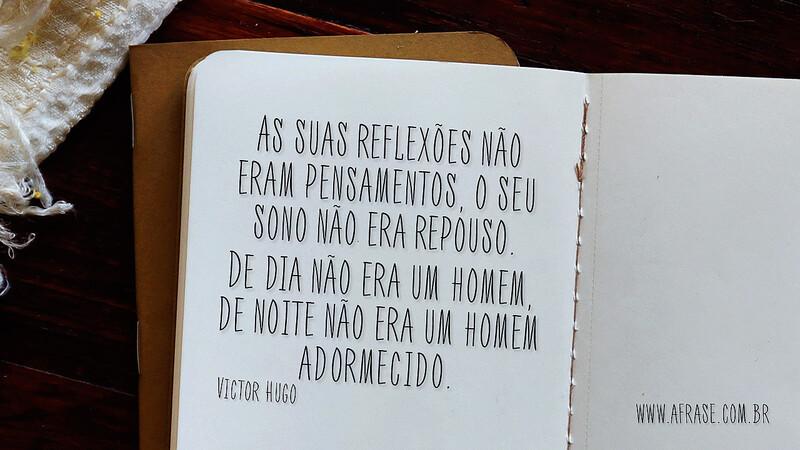 AS SUAS REFLEXÕES NÃO
ERAM PENSAMENTOS, O SEU
SONO NÃO ERA REPOUSO.
DE DIA NÃO ERA UM HOMEM,
DE NOITE NÃO ERA UM HOMEM
ADORMECIDO.
VICTOR HUGO
WWW.AFRASE.COM.BR